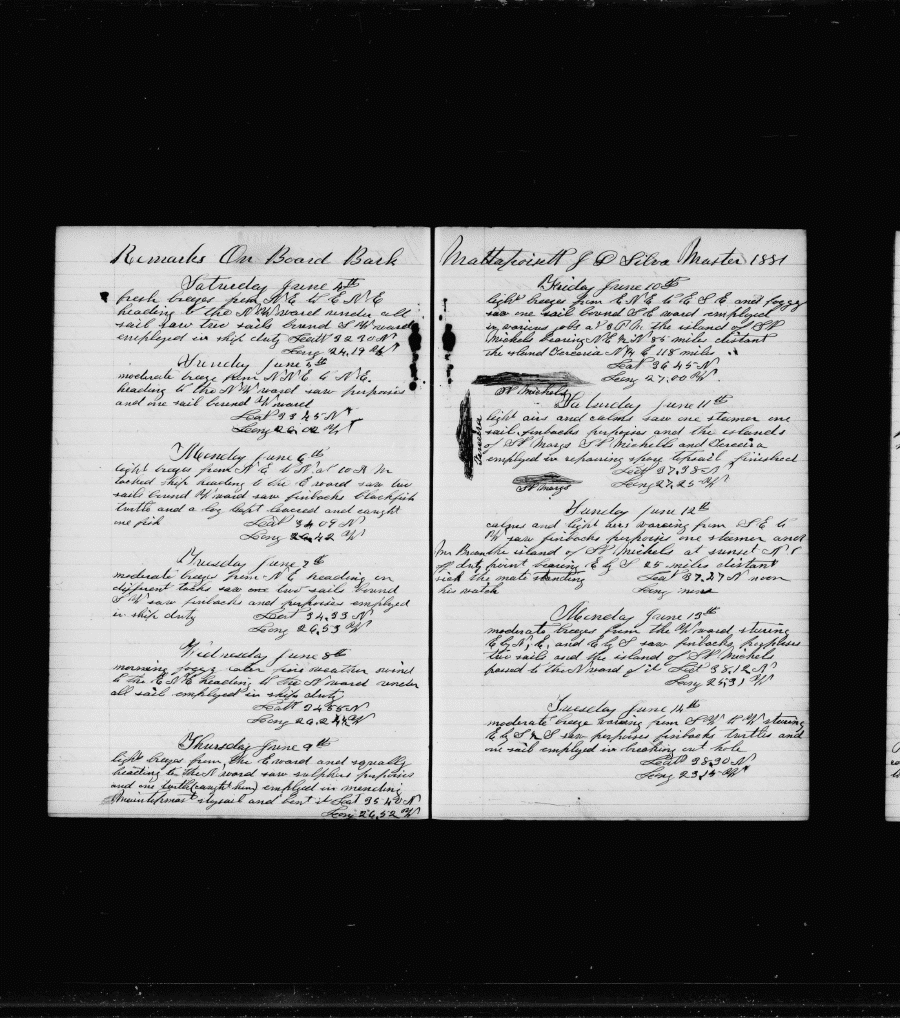 Remarks On Board Bark
Saturday June 4th
fresh breezes from N E to E N E
heading to the N W ward under all
sail saw two sails bound S W ward
employed in ship duty Latt 32 30 N
Long 24,19 W
Sunday June 5th
moderate breeze from N N E to N E.
heading to the N W ward saw porpoises
and one sail bound W ward
Latt 33 45 N
Long 26,02 W
Monday June 6th
light breezes from N E to N at 10 A M
tacked ship heading to the E ward saw two
sails bound W ward saw finbacks blackfish
turtle and a log kept lowered and caught
one fish Latt 34 09 N
Long 26,42 W
Tuesday June 7th
moderate breeze from N E heading on
different tacks saw one two sails bound
S W saw finbacks and porpoises employed
in ship duty Latt 34,33 N
Long 26,53 W
Wednesday June 8th
morning foggy later fine weather wind
to the E N E heading to the N ward under
all sail employed in ship duty
Latt 34 55 N
Long 26,24 W
Thursday June 9th
light breezes from the E ward and squally
heading to the N ward saw sulphur porpoises
and one turtle (caught him) employed in mending
Maintopmast staysail and bent it Latt 35 40 N
Long 26,52 W
Mattapoisett J D Silva Master 1881
Friday June 10th
light breezes from E N E to E S E and foggy
saw one sail bound S E ward employed
in various jobs at 3 P M the island of St
Michels bearing N E ½ N 85 miles distant
the island Terceria N ½ E 118 miles
Latt 36 45 N
Long 27,00 W
St Michels
Saturday June 11th
light airs and calms saw one steamer one
sail finbacks porpoises and the islands
of St Marys St Michells and Terceira
employed in repairing spare topsail finished
Latt 37,38 N
Long 27,25 W
Terceira
St Marys
Sunday June 12th
calms and light airs varying from S E to
W saw finbacks porpoises one steamer and
the island of St Michels at sunset N E
point bearing E by S 25 miles distant
Latt 37.27 N noon
Long none
Mr Brown
off duty
sick the mate standing
his watch
Monday June 13th
moderate breezes from the W ward stering
E by N, E, and E by S saw finbacks, porpoises
two sails and the island of St Michels
passed to the N ward of it Latt 38,12 N
Long 25,31 W
Tuesday June 14th
moderate breeze varying from S W to W stering
E by S ½ S saw porpoises finbacks turtles and
one sail employed in breaking out hole
Latt 38.30 N
Long 23,15 W